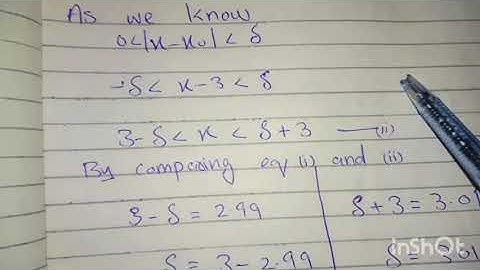 As we know
0<|x-x₀|<δ
-δ< x-3 < δ
3-δ < x < δ+3 —(ii)
By comparing eq (i) and (ii)
3-δ = 2.99 δ+3 = 3.01
δ = 3-2.99 δ = 0.01
InShOt